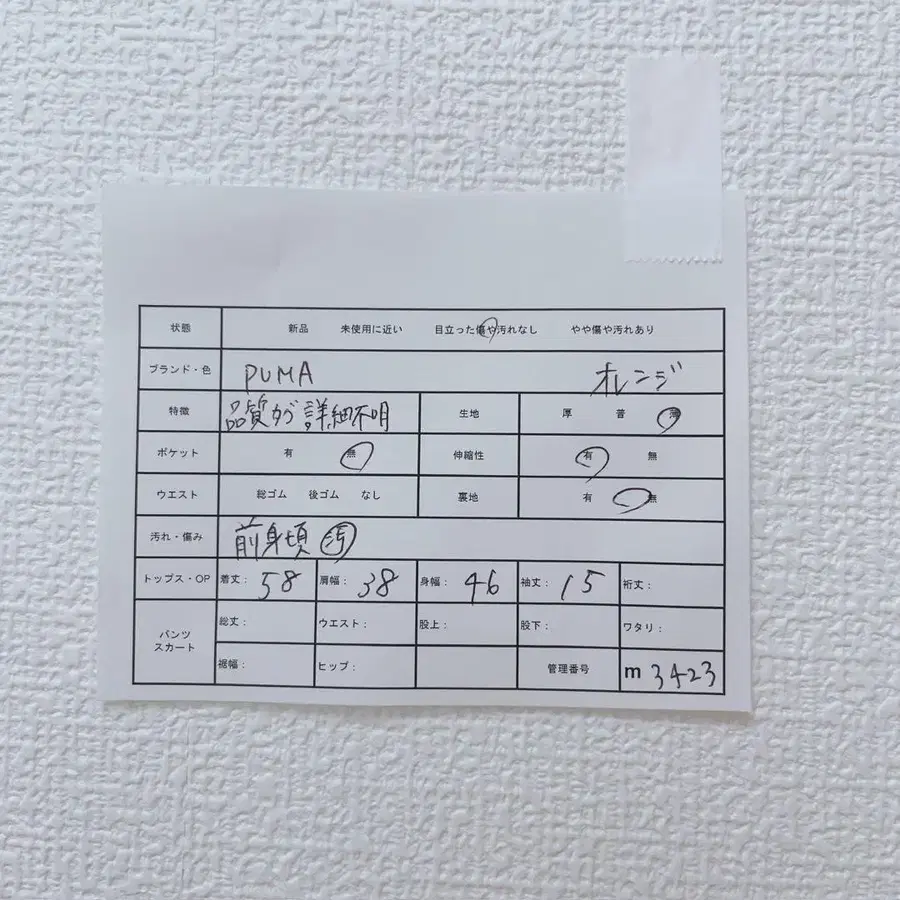 状態 新品 未使用に近い 目立った傷や汚れなし やや傷や汚れあり
ブランド・色 PUMA オレンジ
特徴 品質タグ詳細不明 生地 厚 普 薄
ポケット 有 無 伸縮性 有 無
ウエスト 総ゴム 後ゴム なし 裏地 有 無
汚れ・傷み 前身頃 汚
トップス・OP 着丈: 58 肩幅: 38 身幅: 46 袖丈: 15 裄丈:
パンツ スカート 総丈: ウエスト: 股上: 股下: ワタリ:
裾幅: ヒップ: 管理番号 m 3423